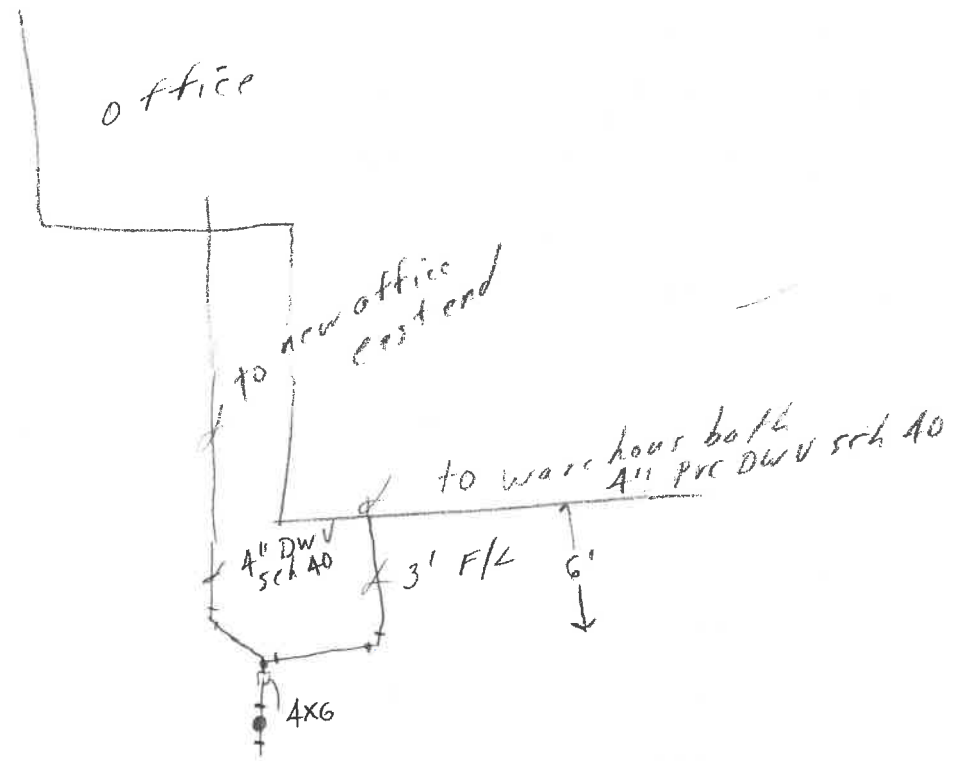 office
to new office
east end
to warehous both
4" PVC DWV sch 40
4" DWV
sch 40
3' F/L
6'
4X6